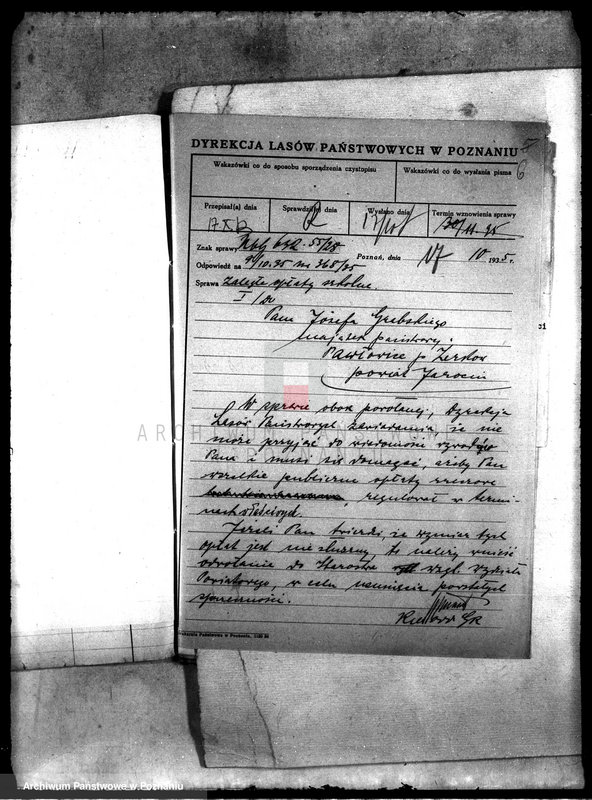 DYREKCJA LASÓW PAŃSTWOWYCH W POZNANIU
6
Wskazówki co do sposobu sporządzenia czystopisu
Wskazówki co do wysłania pisma
Przepisał(a) dnia
Sprawdził(a) dnia
Wysłano dnia
Termin wznowienia sprawy
17 X
30/11.35
Znak sprawy
Poznań, dnia 17 10 1935 r.
Odpowiedź na /10.35 nr 365/35
Sprawa zaległe opłaty szkolne.
Pan Józefa Grebskiego
majątek państwowy
Pawłowice p. Żerków
powiat Jarocin
W sprawie obok powołanej, Dyrekcja
Lasów Państwowych zawiadamia, że nie
może przyjąć do wiadomości
Pana i musi się domagać, ażeby Pan
wszelkie publiczne opłaty
regulował w termi-
nach właściwych.
Jeżeli Pan twierdzi, że wymiar tych
opłat jest niesłuszny to należy wnieść
odwołanie do Starosty wzgl. Wydziału
Powiatowego, w celu usunięcia powstałych
Drukarnia Państwowa w Poznaniu.
ARCHIWUM PAŃSTWOWE
W POZNANIU
Archiwum Państwowe w Poznaniu